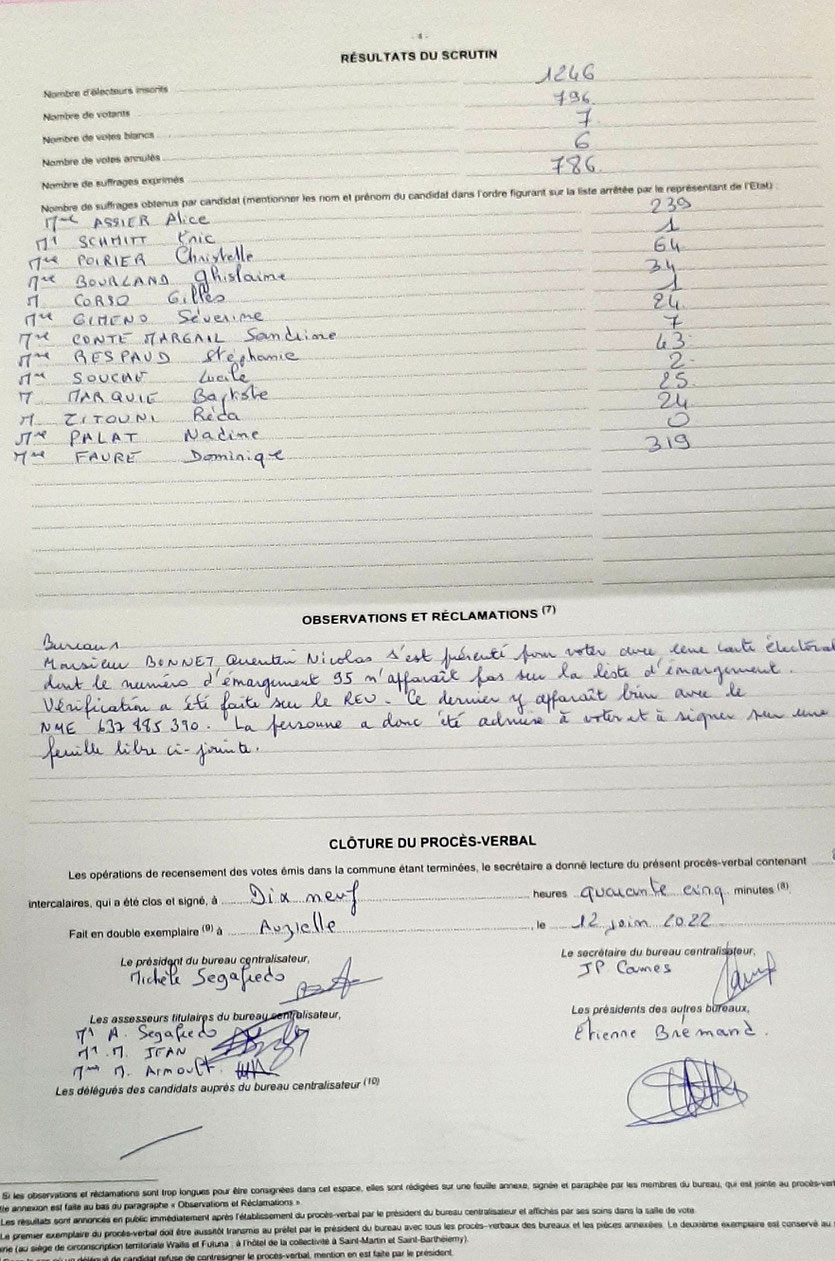 - 4 -
RÉSULTATS DU SCRUTIN
Nombre d'électeurs inscrits 1246
Nombre de votants 796
Nombre de votes blancs 7
Nombre de votes annulés 6
Nombre de suffrages exprimés 786
Nombre de suffrages obtenus par candidat (mentionner les nom et prénom du candidat dans l'ordre figurant sur la liste arrêtée par le représentant de l'Etat) :
Mme ASSIER Alice 239
Mr SCHMITT Eric 1
Mme POIRIER Christelle 64
Mme BOURLAND Ghislaine 34
M. CORSO Gilles 1
Mme GIMENO Séverine 24
Mme CONTE MARGAIL Sandrine 7
Mme RESPAUD Stéphanie 43
Mme SOUCAU Lucile 2
M MARQUIE Baptiste 25
M. ZITOUNI Réda 24
Mme PALAT Nadine 0
Mme FAURE Dominique 319
OBSERVATIONS ET RÉCLAMATIONS (7)
Bureau 1
Monsieur BONNET Quentin Nicolas s'est présenté pour voter avec une carte électoral
dont le numéro d'émargement 95 n'apparaît pas sur la liste d'émargement.
Vérification a été faite sur le REU. Ce dernier y apparaît bien avec le
NNE 637 885 390. La personne a donc été admise à voter et à signer sur une
feuille libre ci-jointe.
CLÔTURE DU PROCÈS-VERBAL
Les opérations de recensement des votes émis dans la commune étant terminées, le secrétaire a donné lecture du présent procès-verbal contenant
intercalaires, qui a été clos et signé, à Dix neuf heures quarante cinq minutes (8).
Fait en double exemplaire (9) à Auzielle , le 12 juin 2022
Le président du bureau centralisateur, Le secrétaire du bureau centralisateur,
Michèle Segafredo JP Cames
Les assesseurs titulaires du bureau centralisateur, Les présidents des autres bureaux,
Mr A. Segafredo Etienne Bremand.
Mr. M. JEAN
Mme M. Armoult.
Les délégués des candidats auprès du bureau centralisateur (10)
Si les observations et réclamations sont trop longues pour être consignées dans cet espace, elles sont rédigées sur une feuille annexe, signée et paraphée par les membres du bureau, qui est jointe au procès-ver
annexion est faite au bas du paragraphe « Observations et Réclamations ».
Les résultats sont annoncés en public immédiatement après l'établissement du procès-verbal par le président du bureau centralisateur et affichés par ses soins dans la salle de vote.
Le premier exemplaire du procès-verbal doit être aussitôt transmis au préfet par le président du bureau avec tous les procès-verbaux des bureaux et les pièces annexées. Le deuxième exemplaire est conservé au
rie (au siège de circonscription territoriale Wallis et Futuna ; à l'hôtel de la collectivité à Saint-Martin et Saint-Barthélemy).
délégué de candidat refuse de contresigner le procès-verbal, mention en est faite par le président.